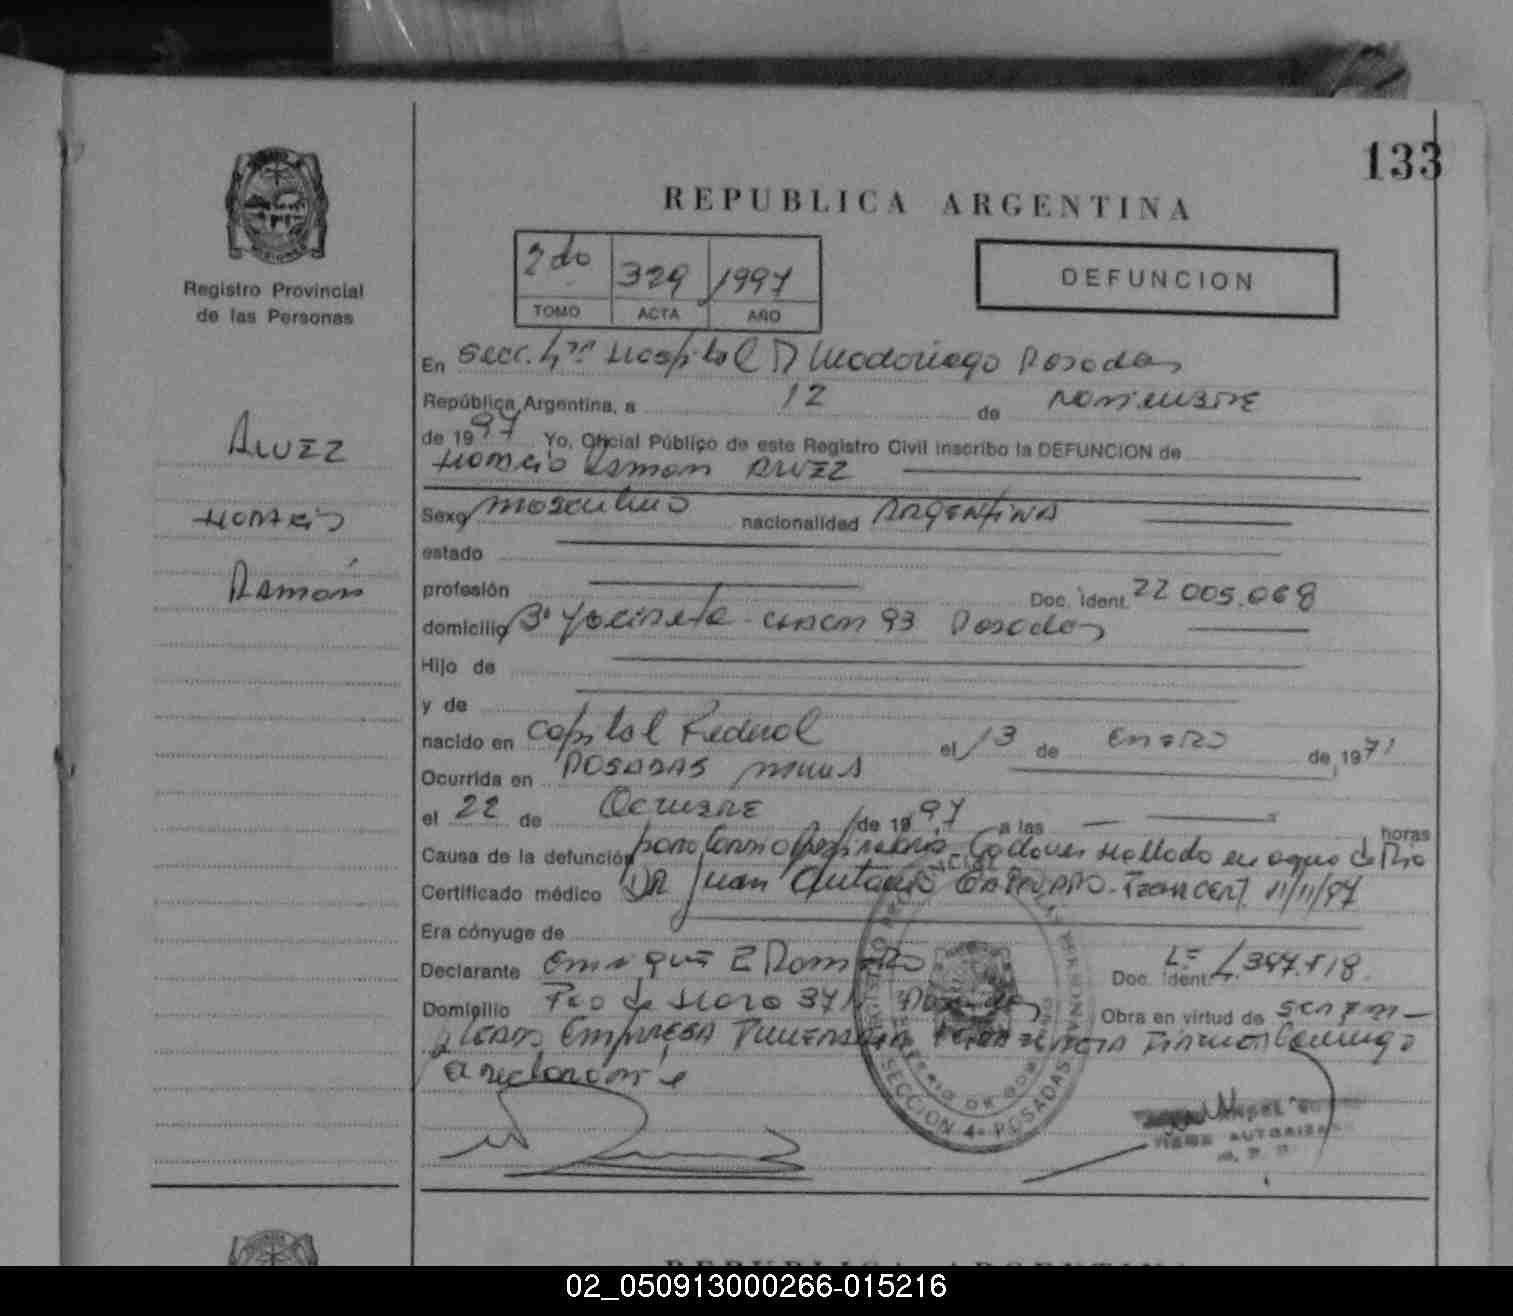 133
REPUBLICA ARGENTINA
2do 329 1997
TOMO ACTA AÑO
DEFUNCION
Registro Provincial
de las Personas
ALVEZ
Ramón
En Secc. 4ta Hospital R Madariaga Posadas
República Argentina, a 12 de Noviembre
de 1997 Yo, Oficial Público de este Registro Civil inscribo la DEFUNCION de
Ramon ALVEZ
Sexo masculino nacionalidad ARGENTINA
estado
profesión Doc. Ident. 22 005.068
domicilio Bº Yacireta - casa 93 Posadas
Hijo de
y de
nacido en Capital Federal el 13 de Enero de 1971
Ocurrida en POSADAS Mnes
el 22 de Octubre de 1997 a las — horas
Causa de la defunción paro Cardio Respiratorio Cadaver Hallado en agua de Rio
Certificado médico DR Juan 11/11/97
Era cónyuge de
Declarante Enrique E Romero Doc. Ident. LE
Domicilio 3711 Posadas Obra en virtud de ser em-
pleado Empresa Funeraria
REGISTRO PROVINCIAL DE LAS PERSONAS
MINISTERIO DE GOBIERNO
SECCION 4a POSADAS
REPUBLICA ARGENTINA
02_050913000266-015216